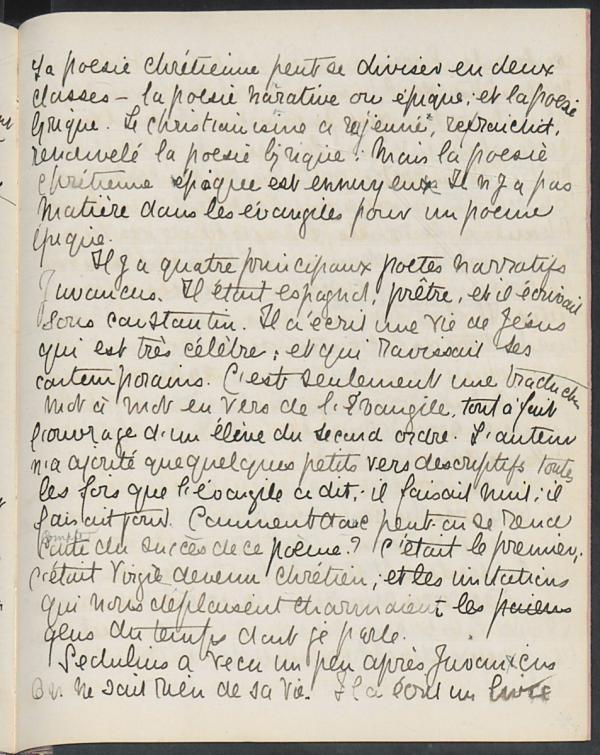 La poesie chrétienne peut se diviser en deux
classes – la poesie narative ou épique; et la poesie
lyrique. Le christianisme a rajeuni, refraichit,
renduvelé la poesie lyrique: mais la poesie
chrétienne épique est ennuyeuxe Il n'y a pas
matière dans les évangiles pour un poeme
épique.
Il y a quatre principaux poetes narratifs
Juvancus. Il était espagnol, prêtre, et il écrivait
sous constantin. Il a écrit une vie de Jésus
qui est très célèbre; et qui ravissait ses
contemporains. C'est seulement une traduction
mot à mot en vers de l'Évangile, tout à fait
l'ouvrage d'un élève du second ordre. L'auteur
n'a ajouté que quelques petits vers descriptifs toutes
les fois que l'évangile a dit; il faisait nuit; il
faisait jour. Comment donc peut-on se rend
compte
conte du succès de ce poème? C'était le premier;
c'était Virgile devenu chrétien; et les imitations
qui nous déplaisent charmaient les paiens
gens du temps dont je parle.
Sedulius a vecu un peu après Juvancus
On ne sait rien de sa vie. Il a écrit un livre